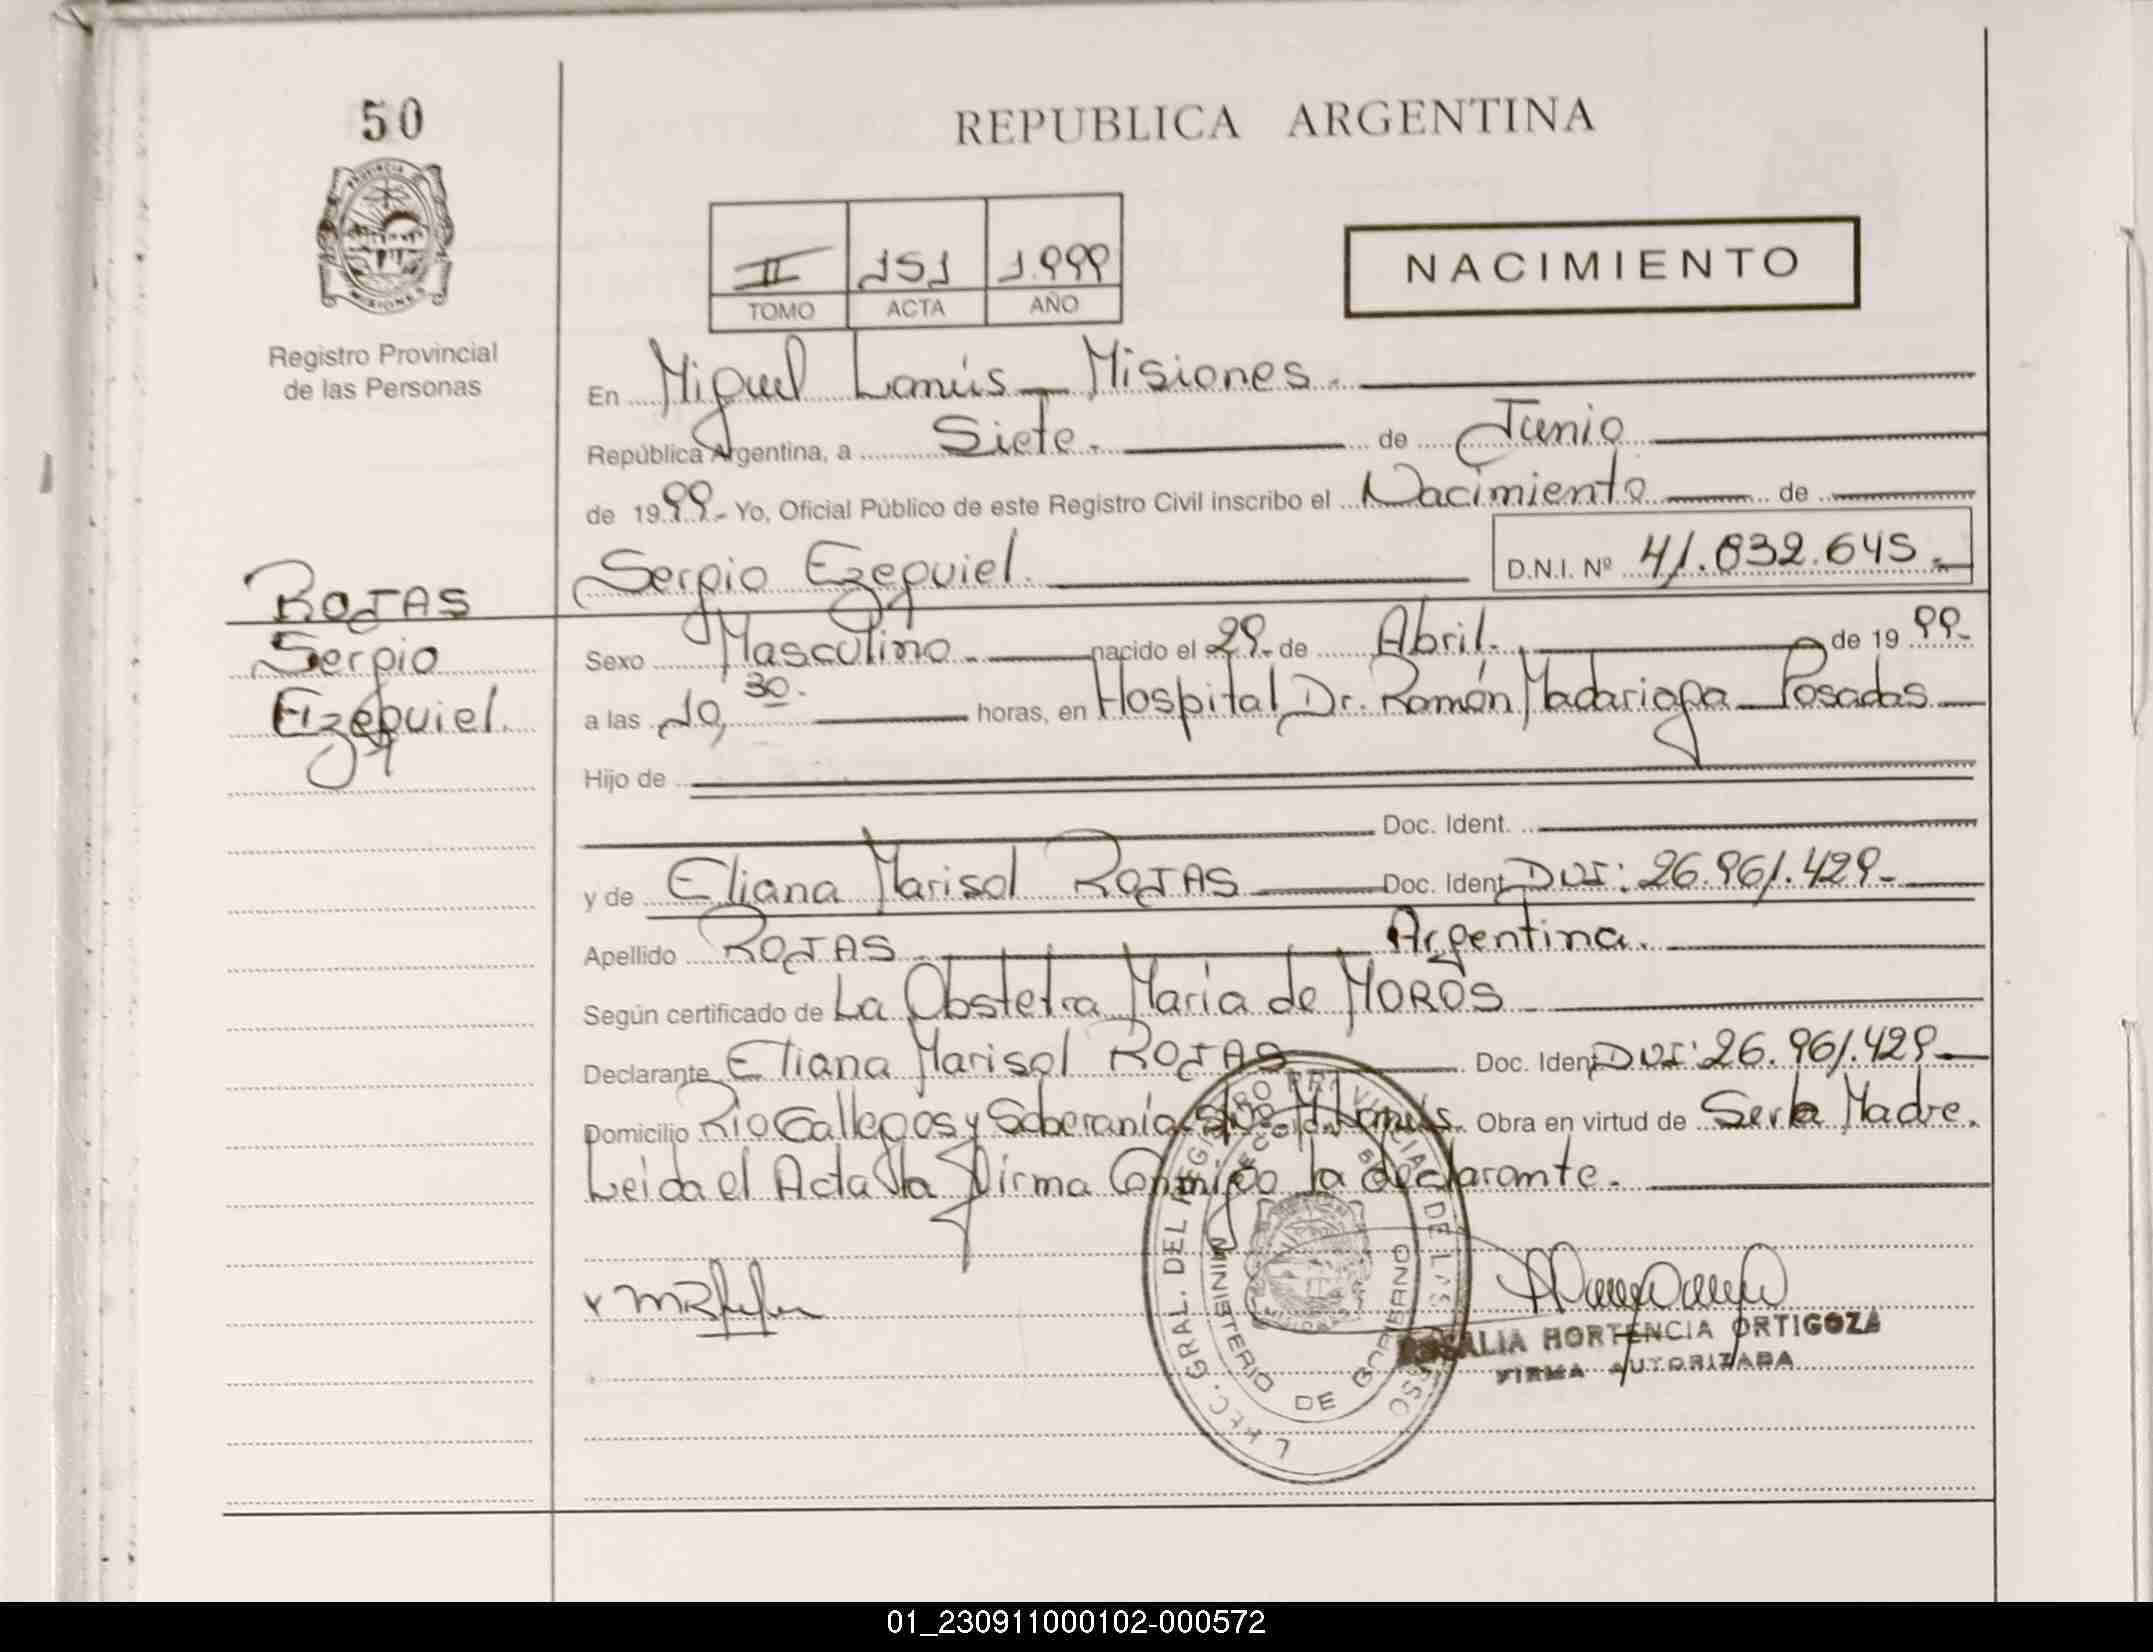 50
REPUBLICA ARGENTINA
PROVINCIA
MISIONES
II 151 1.999
TOMO ACTA AÑO
NACIMIENTO
Registro Provincial
de las Personas
En Miguel Lanús - Misiones.
República Argentina, a Siete. de Junio
de 1999.- Yo, Oficial Público de este Registro Civil inscribo el Nacimiento de
Sergio Ezequiel. D.N.I. Nº 41.832.645.-
ROJAS
Sergio
Ezequiel.
Sexo Masculino. nacido el 29. de Abril. de 1999.
a las 10,30. horas, en Hospital Dr. Ramón Madariaga - Posadas
Hijo de
Doc. Ident.
y de Eliana Marisol ROJAS Doc. Ident DNI: 26.961.429-
Apellido ROJAS Argentina.
Según certificado de La Obstetra María de MOROS
Declarante Eliana Marisol ROJAS Doc. Ident DNI: 26.961.429
Domicilio Rio Gallegos y Soberanía Lanús. Obra en virtud de Ser la Madre.
Leida el Acta la Firma Conmigo la declarante.
ROSALIA HORTENCIA ORTIGOZA
FIRMA AUTORIZADA
GRAL. DEL REGISTRO PROVINCIAL DE LAS
MINISTERIO DE GOBIERNO
01_230911000102-000572